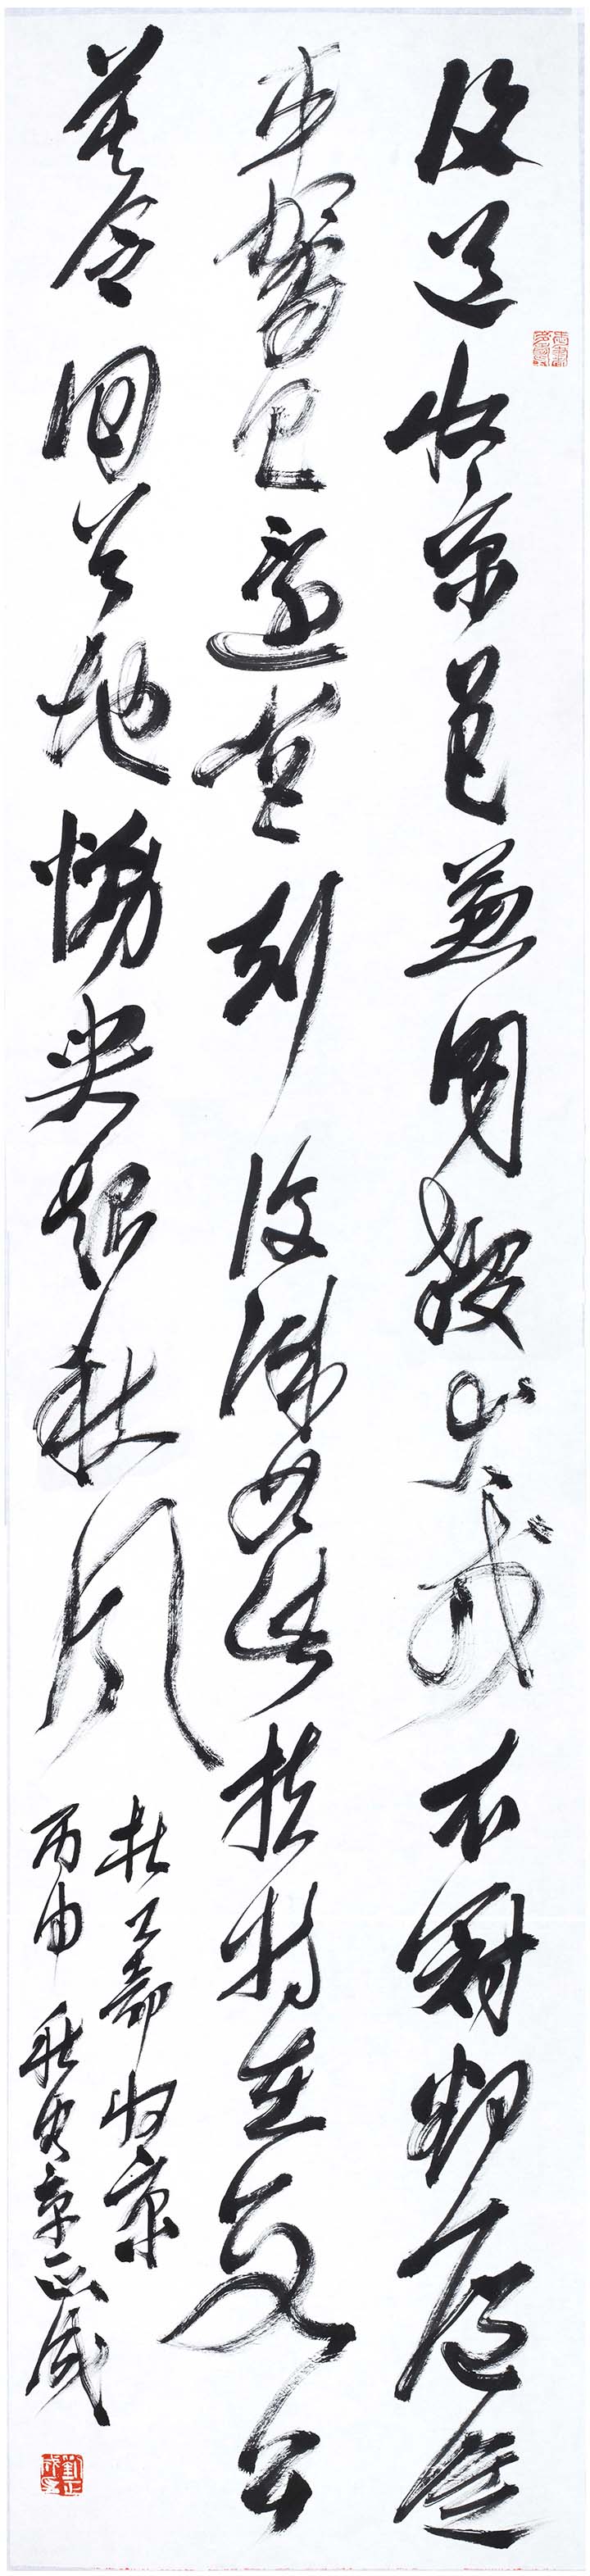 復道收京邑兼聞殺犬戎衣冠卻扈從
車駕已還宮剋復誠如此扶持在數公
莫令回首地慟哭起秋風
杜工部收京
丙申秋 京正成
劉正成